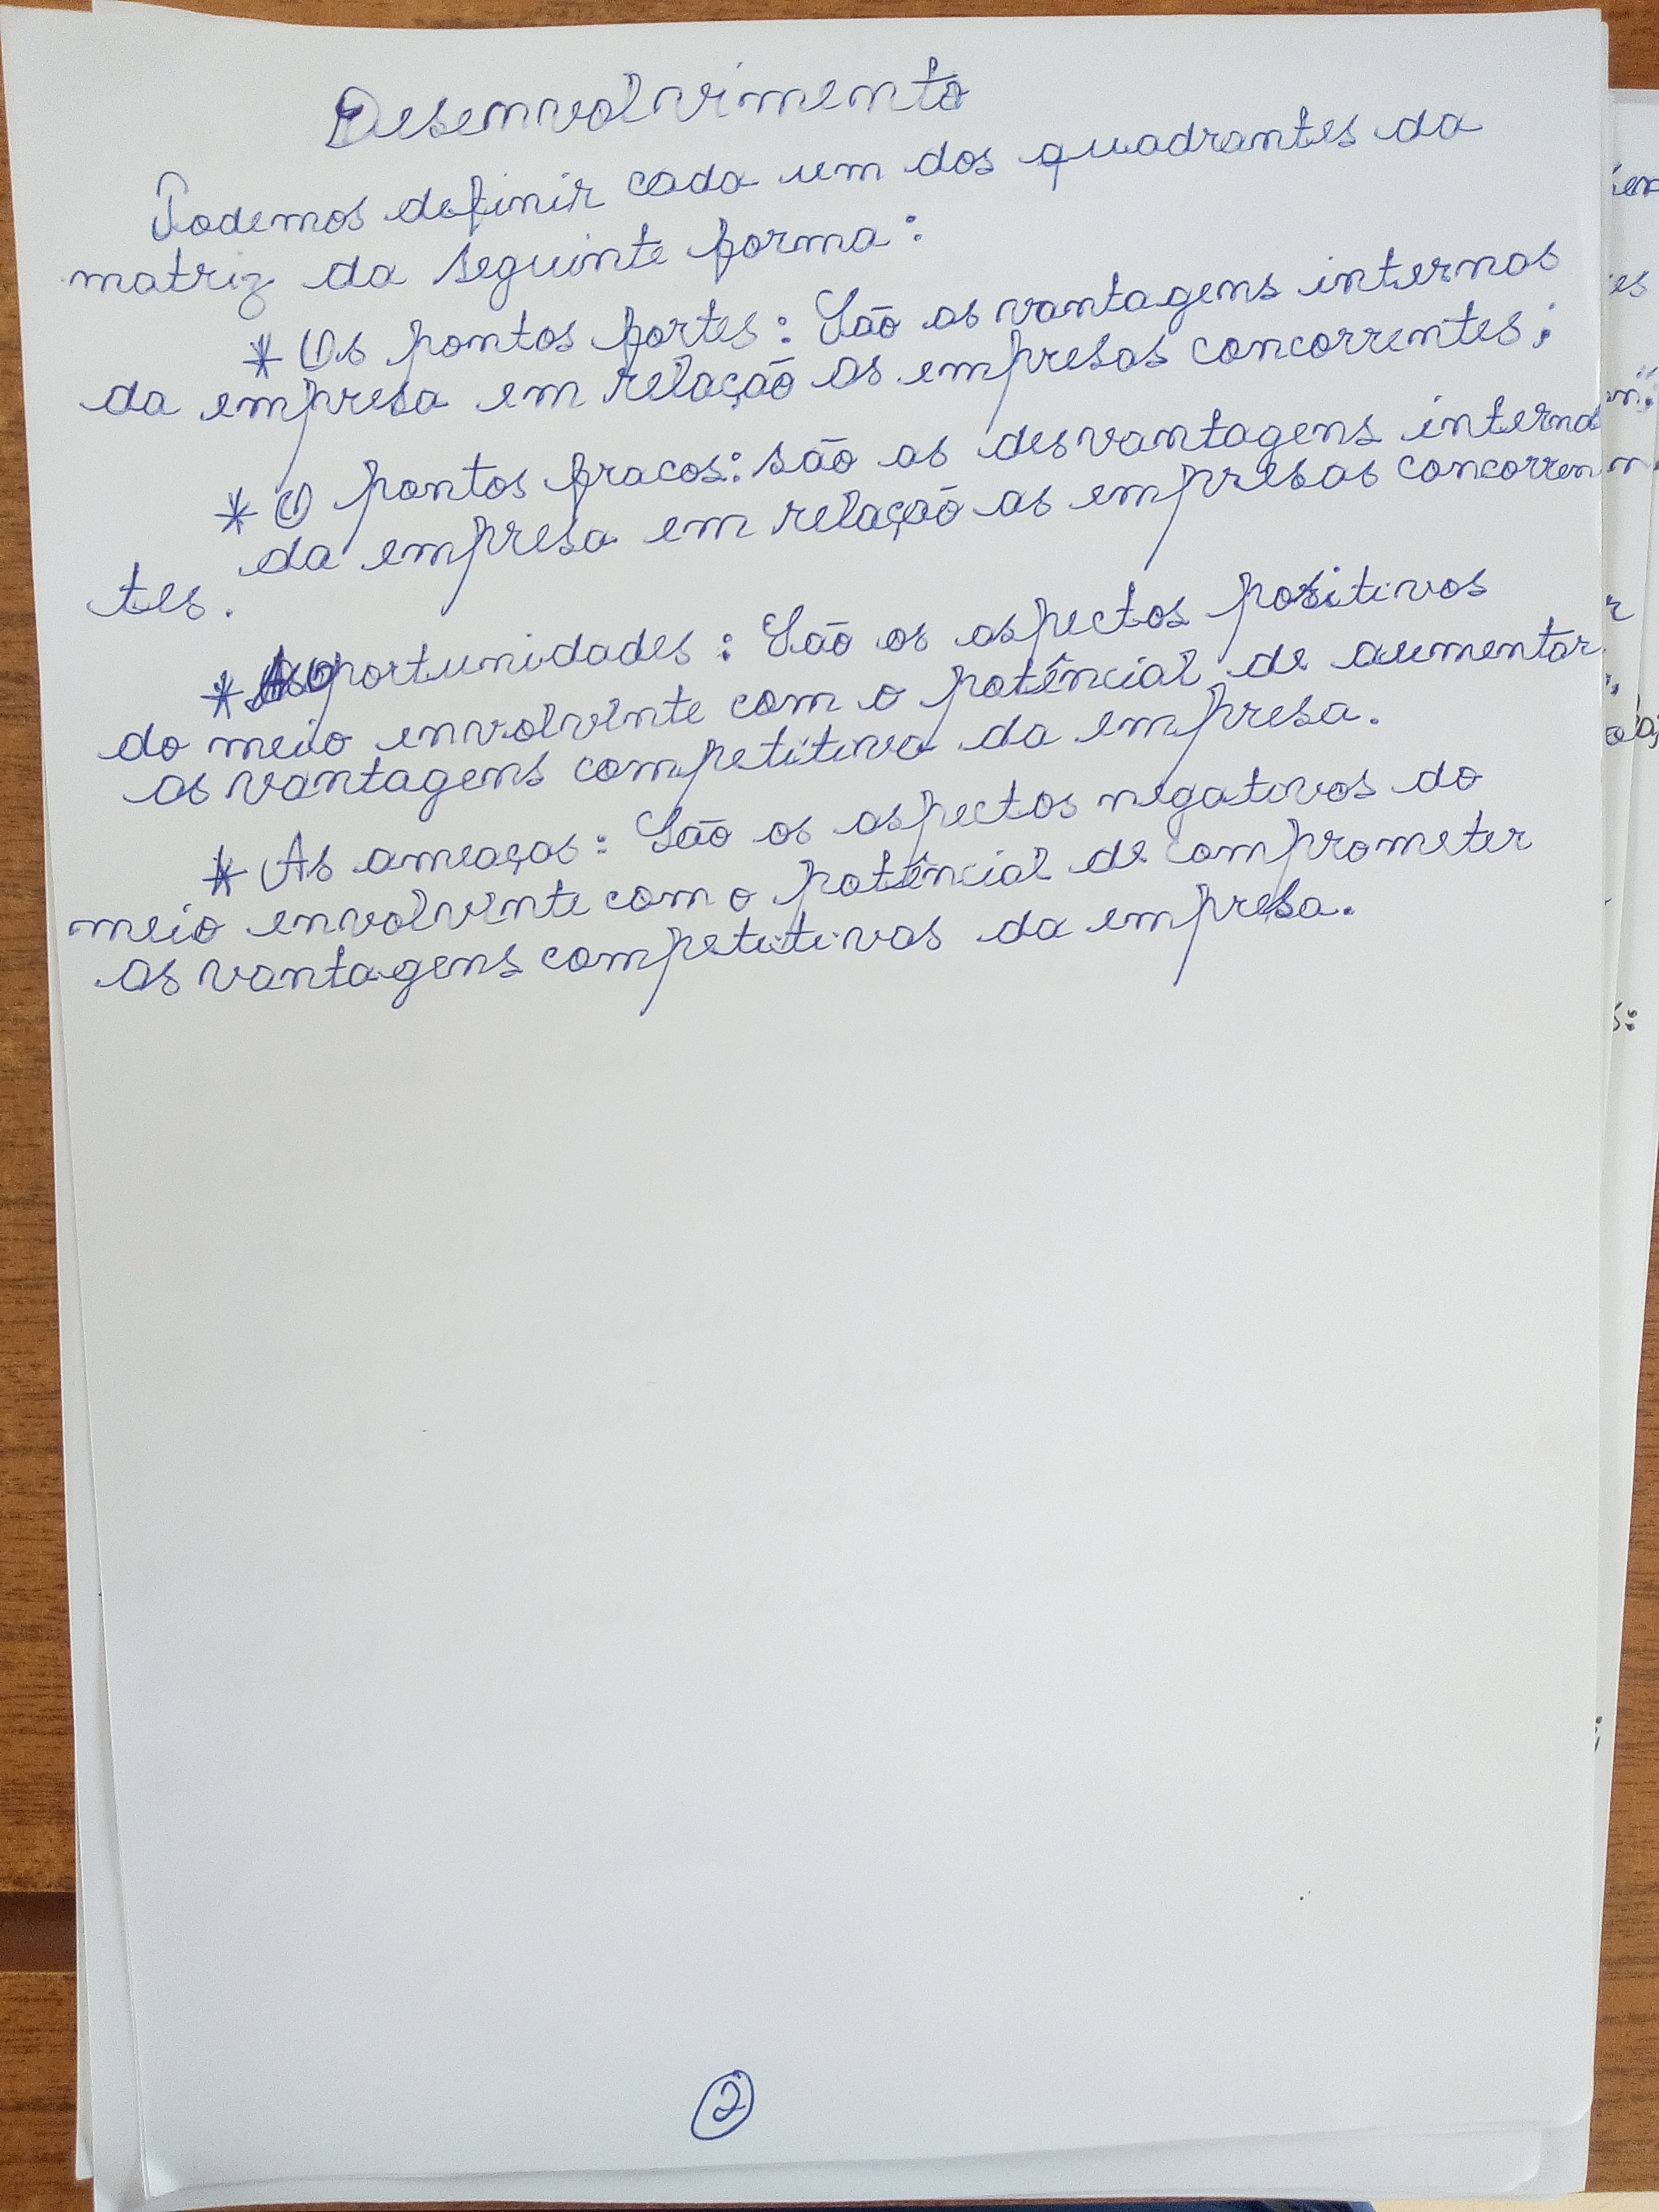 Desenvolvimento
Podemos definir cada um dos quadrantes da
matriz da seguinte forma:
* Os pontos fortes: São as vantagens internas
da empresa em relação as empresas concorrentes;
* O pontos fracos: são as desvantagens interna
da empresa em relação as empresas concorren
tes.
* oportunidades: São os aspectos positivos
do meio envolvente com o potêncial de aumentar
as vantagens competitiva da empresa.
* As ameaças: São os aspectos negativos do
meio envolvente com o potêncial de comprometer
as vantagens competitivas da empresa.
2